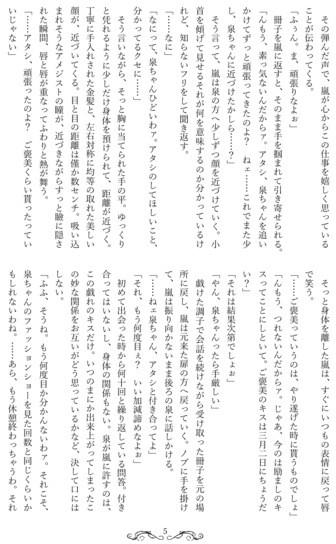 その弾んだ声で、嵐が心からこの仕事を嬉しく思っている
ことが伝わってくる。
「ふぅん。ま、頑張りなよぉ」
冊子を嵐に返すと、そのまま手を掴まれて引き寄せられる。
「んもう、素っ気ないんだからァ。アタシ、泉ちゃんを追い
かけてずっと頑張ってきたのよ？　ねェ……これでまた少
し、泉ちゃんに近づけたかしら……？」
そう言って、嵐は泉の方へ少しずつ顔を近づけていく。小
首を傾げて見せるそれが何を意味するのか分かっているけ
れど、知らないフリをして聞き返す。
「……なに」
「なにって、泉ちゃんひどいわァ。アタシのしてほしいこと、
分かってるクセに……」
そう言いながら、そっと胸に当てられた手の平。ゆっくり
と凭れるように少しだけ身体を預けられて、距離が近づく。
丁寧に手入れされた金髪と、左右対称に均等の取れた美しい
顔が、近づいてくる。目と目の距離は僅か数センチ。吸い込
まれそうなアメジストの瞳が、近づきながらすっと瞼に隠さ
れた瞬間、唇と唇が重なってふわりと熱が舞う。
「……アタシ、頑張ったのよォ？　ご褒美くらい貰ったってい
いじゃない」
そっと身体を離した嵐は、すぐにいつもの表情に戻って唇
で笑う。
「……ご褒美っていうのは、やり遂げた時に貰うものでしょ」
「んもう、つれないんだからァ。じゃあ、今のは励ましのキ
スってことにしといて、ご褒美のキスは三月二日にちょうだ
い？」
「それは結果次第でしょぉ」
「やん、泉ちゃんったら手厳しい」
戯けた調子で会話を続けながら受け取った冊子を元の場
所に戻し、嵐は元来た扉の方へ戻っていく。ノブに手を掛け
て、嵐は振り向かないまま後ろの泉に話しかける。
「……ねェ泉ちゃん、アタシと付き合ってよ」
「それ、もう何度目ぇ？　いい加減諦めなよぉ」
初めて出会った時から何十回と繰り返している問答。付き
合ってはいないし、身体の関係もない。泉が嵐に許すのは、
この戯れのキスだけ。いつのまにか出来上がってしまったこ
の妙な関係をお互いがどう思っているかなど、決して口には
しない。
「ふふ、そうね。もう何度目か分かんないわァ。それこそ、
泉ちゃんのファッションショーを見た回数と同じくらいか
もしれないわね。……あら、もう休憩終わっちゃうわ。それ
5